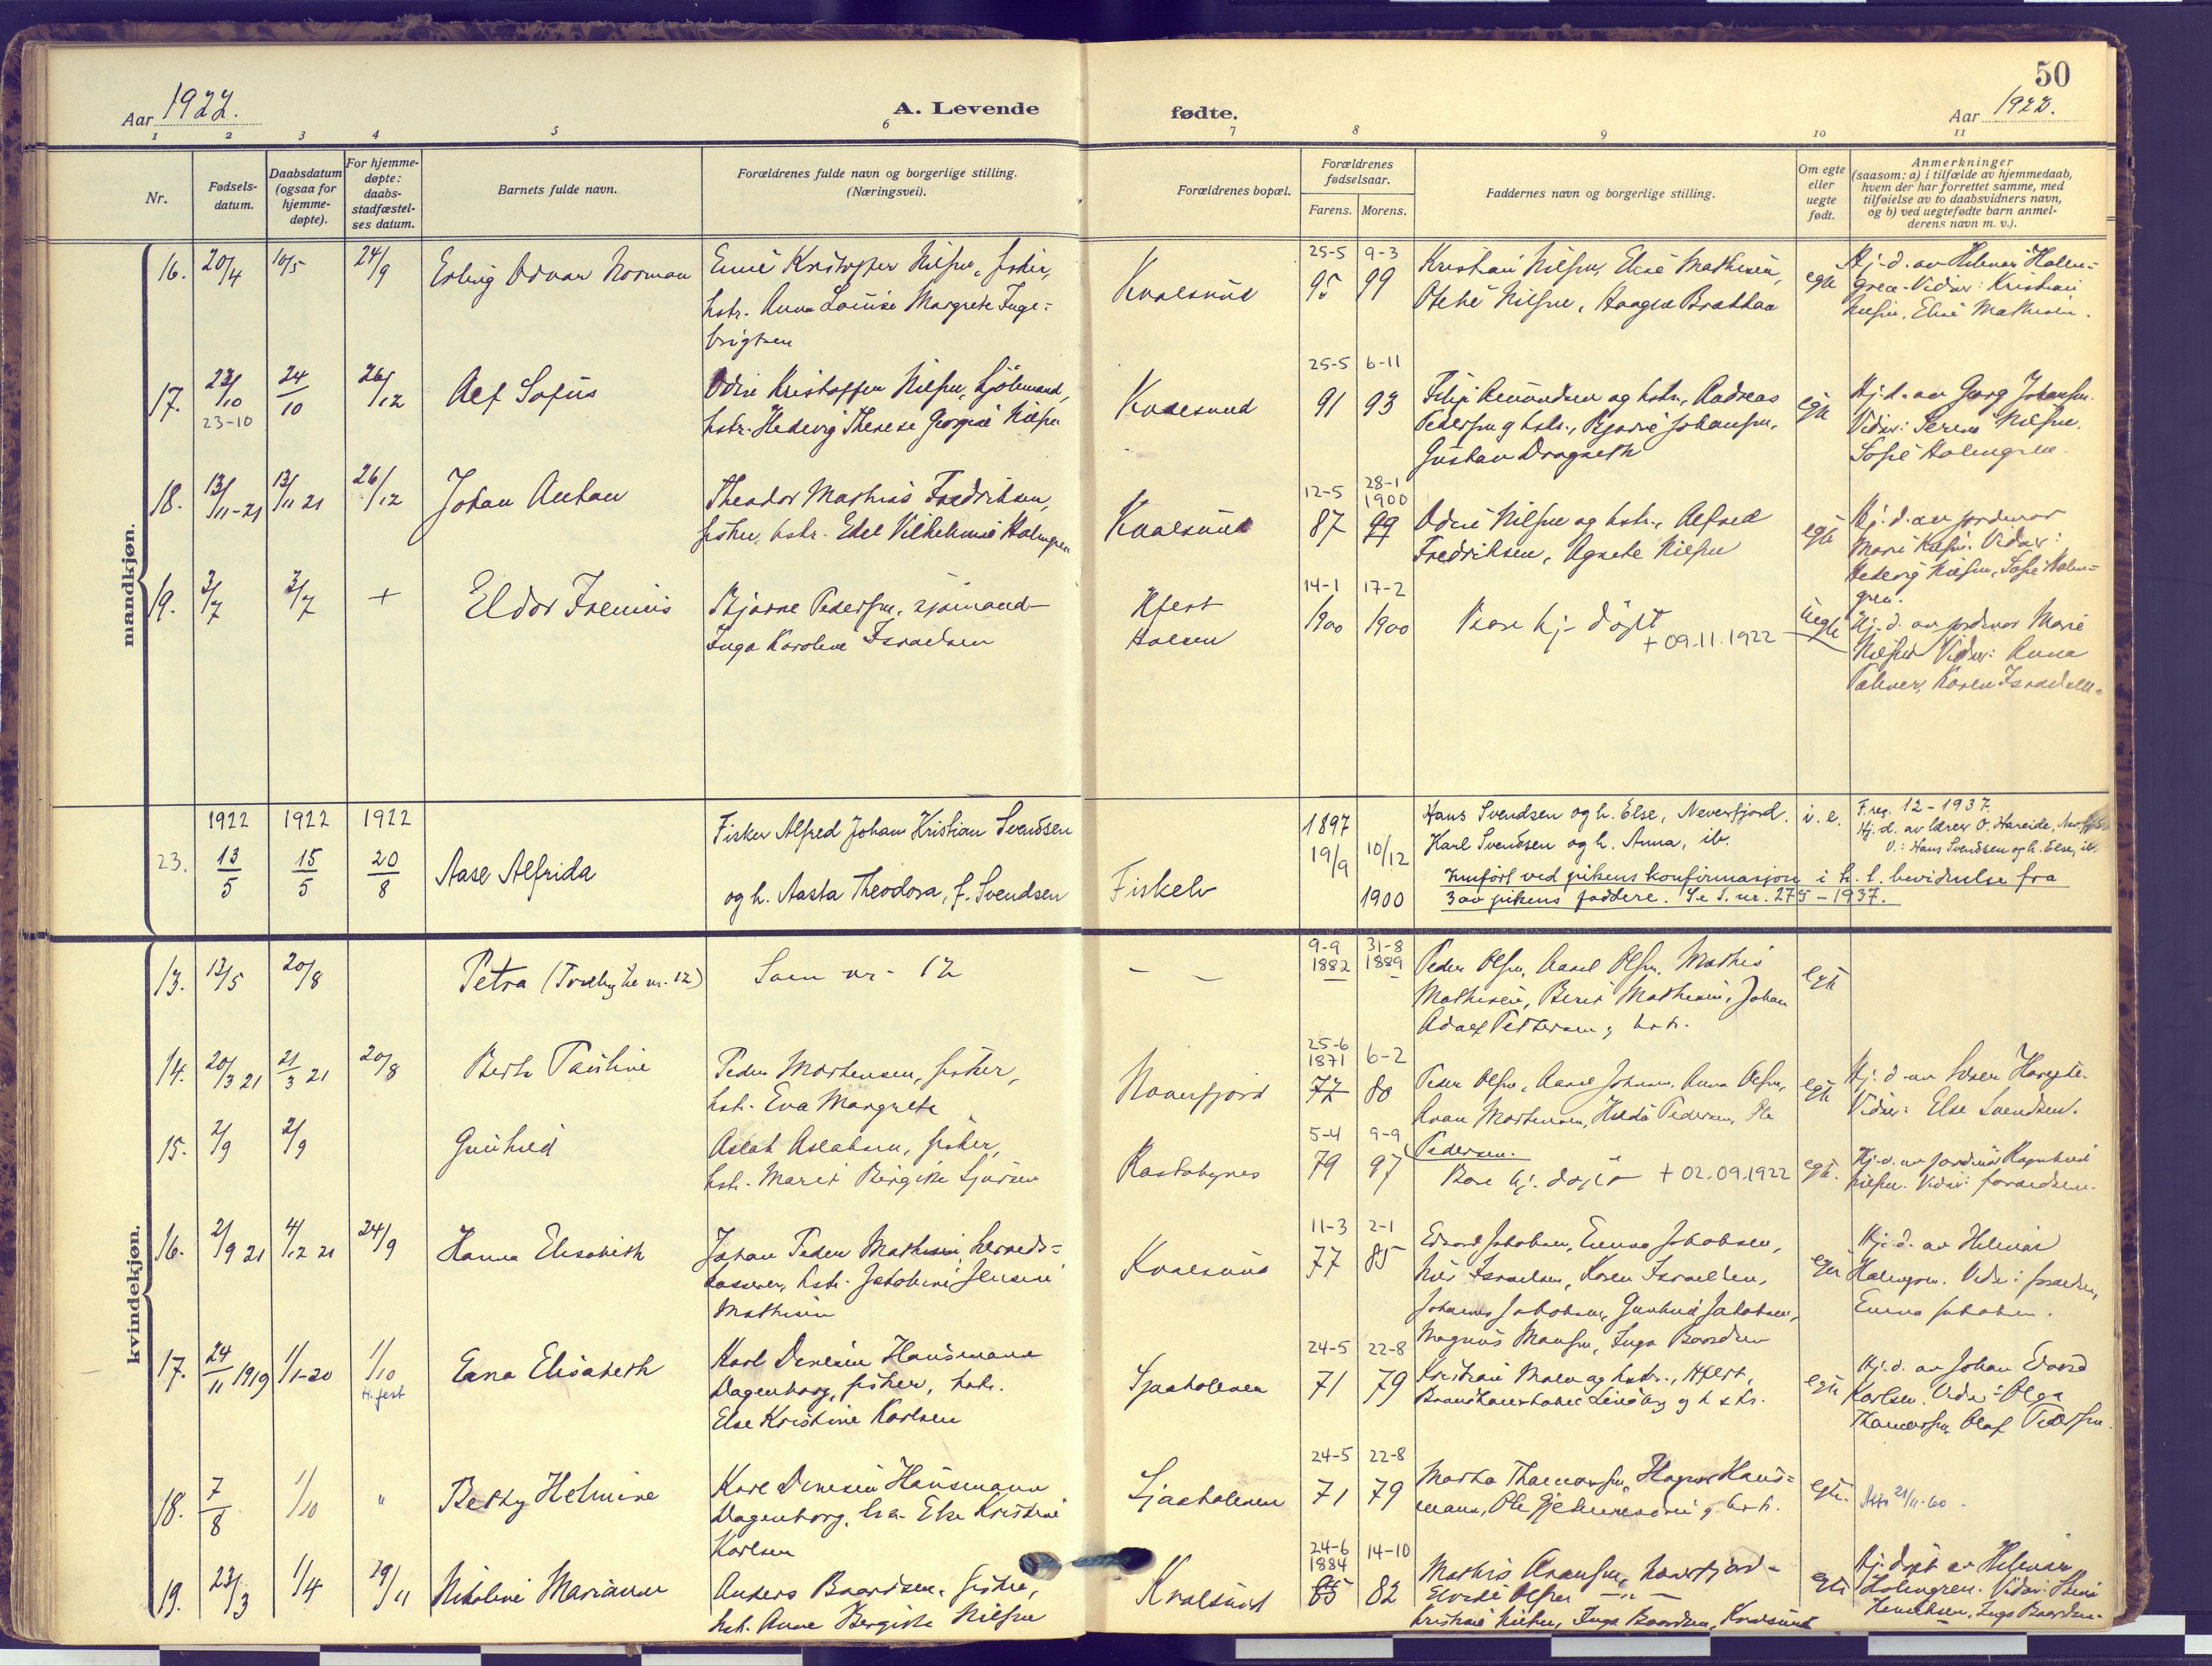 50
Aar 1922.
A. Levende
fødte.
Aar 1922.
1 2 3 4 5 6 7 8 9 10 11
Nr.
Fødsels-
datum.
Daabsdatum
(ogsaa for
hjemme-
døpte).
For hjemme-
døpte:
daabs-
stadfæstel-
ses datum.
Barnets fulde navn.
Forældrenes fulde navn og borgerlige stilling.
(Næringsvei).
Forældrenes bopæl.
Forældrenes
fødselsaar.
Farens. Morens.
Faddernes navn og borgerlige stilling.
Om egte
eller
uegte
født.
Anmerkninger
(saasom: a) i tilfælde av hjemmedaab,
hvem der har forrettet samme, med
tilføielse av to daabsvidners navn,
og b) ved uegtefødte barn anmel-
derens navn m. v.).
mandkjøn.
16. 20/4 10/5 24/9 Erling Odvar Norman
Kristoffer Nilsen, fisker,
hstr. Anna Louise Margrete Inge-
brigtsen
Kvalsund
25-5 9-3
95 99
Kristian Nilsen, Elise Mathisen,
Nilsen, Haagen
egte
Hj. d. av Helmar Holm-
gren. Vidner: Kristian
Nilsen, Elise Mathisen.
17. 23/10 24/10 26/12 Alf Sofus
23-10
Odin Kristoffer Nilsen, Sjømand,
hstr. Hedevig Therese Georgine Nilsen
Kvalsund
25-5 6-11
91 93
og hstr., Andreas
Pedersen og hstr., Bjarne Johansen,
Gustav Dragseth
egte
Hj. d. av Georg Johansen.
Vidner: Nilsen.
Sofie Holmgren.
18. 13/11-21 13/11 21 26/12 Johan Anton
Theodor Mathias Fredriksen,
fisker, hstr. Edel Vilhelmine Holmgren
Kvalsund
12-5 28-1
1900
87 99
Odin Nilsen og hstr., Alfred
Fredriksen, Agnete Nilsen
egte
Hj. d. av jordmor
Marie Nilsen. Vidner:
Hedevig Nilsen, Sofie Holm-
gren.
19. 3/7 3/7 + Eldor Fremus
Bjarne Pedersen, sjømand
Inga Karoline Israelsen
Hfest
14-1 17-2
1900 1900
Bare hj. døpt
+ 09.11.1922
uegte
Hj. d. av jordmor Marie
Nilsen Vidner: Anna
Karen Israelsen.
1922 1922 1922
23. 13/5 15/5 20/8 Aase Alfrida
Fisker Alfred Johan Kristian Svendsen
og h. Aasta Theodora, f. Svendsen
Fiskelv
1897
19/9 10/12
1900
Hans Svendsen og h. Else, Neverfjord.
Karl Svendsen og h. Anna, ib.
Innført ved pikens konfirmasjon i h. t. bevidnelse fra
3 av pikens faddere. Se S. nr. 275 - 1937.
i. e.
F. reg. 12 - 1937.
Hj. d. av lærer O. Hareide,
V.: Hans Svendsen og h. Else, ib.
kvindekjøn.
13. 13/5 20/8 Petra (Tvilling til nr. 12)
Som nr. 12
— —
9-9 31-8
1882 1889
Peder Olsen, Aasel Olsen, Mathis
Mathisen, Berit Mathisen, Johan
Adolf Pettersen og hstr.
egte
14. 20/3 21 21/3 21 20/8 Berth Pauline
Peder Mortensen, fisker,
hstr. Eva Margrete
Neverfjord
25-6
1871 6-2
72 80
Peder Olsen, Aasel Johnsen, Anna Olsen,
Mortensen, Hilda Pedersen, Ole
Pedersen.
egte
Hj. d. av lærer Hareide.
Vidner: Else Svendsen.
15. 2/9 2/9 Gunhild
Aslak Aslaksen, fisker,
hstr. Marit Birgitte
5-4 9-9
79 97
Bare hj. døpt + 02.09.1922
egte.
Hj. d. av jordmor Ragnhild
Nilsen. Vidner: forældrene.
16. 2/9 21 4/12 21 24/9 Hanna Elisabeth
Johan Peder Mathisen, herreds-
kasserer, hstr. Jakobine Jensine
Mathisen
Kvalsund
11-3 2-1
77 85
Edvard Jakobsen, Emma Jakobsen,
Nils Israelsen, Karen Israelsen,
Johannes Jakobsen, Gunhild Jakobsen,
Magnus Monsen, Inga Baardsen
egte
Hj. d. av Helmar
Holmgren. Vidn: forældre,
Emma Jakobsen.
17. 24/11 1919 1/1-20 1/10 Erna Elisabeth
H.fest
Karl Hausmann
Dagenborg, fisker, hstr.
Else Kristine Karlsen
Sjaaholmen
24-5 22-8
71 79
Kristian Moen og hstr., Hfest,
og hstr.
egte
Hj. d. av Johan Edvard
Karlsen. Vidn: Olga
Olaf Pedersen.
18. 7/8 1/10 " Betsy Helmine
Karl Hausmann
Dagenborg, hstr. Else Kristine
Karlsen
Sjaaholmen
24-5 22-8
71 79
Marta Hagnor Haus-
mann, Ole og hstr.
egte.
21/11-60
19. 23/3 1/4 19/11 Nikoline Marianne
Anders Baardsen, fisker,
hstr. Anne Bergitte Nilsen
Kvalsund
24-6
1884 14-10
85 82
Mathis Neverfjord -
Olsen —"—
Kristine Nilsen, Inga Baardsen, Kvalsund
egte
Hj. døpt av Helmar
Holmgren. Vidner:
Henriksen, Inga Baardsen.